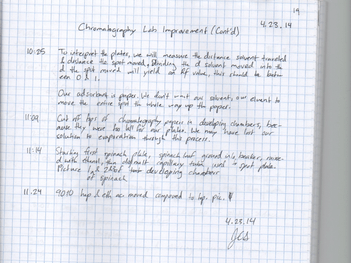 19
Chromatography Lab Improvement (Cont'd)
4.23.14
10:25 To interpret the plates, we will measure the distance solvent traveled
& distance the spot moved. the d solvent moved into the
d the spot moved will yield an Rf value, this should be betw-
een 0 & 1.
Our adsorbent is paper. We don't want our solvent, our eluent to
move the entire spot the whole way up the paper.
11:09 Cut off tops of chromatography papers in developing chambers, bec-
ause they were too tall for our plates. We may have lost our
solution to evaporation through this process.
11:14 Starting first spinach plate, spinach leaf ground in beaker,
d with ethanol, then capillary tube, used spot plate.
Picture developing chamber
of spinach
11:24 90:10 moved compared to
4.23.14
JCS